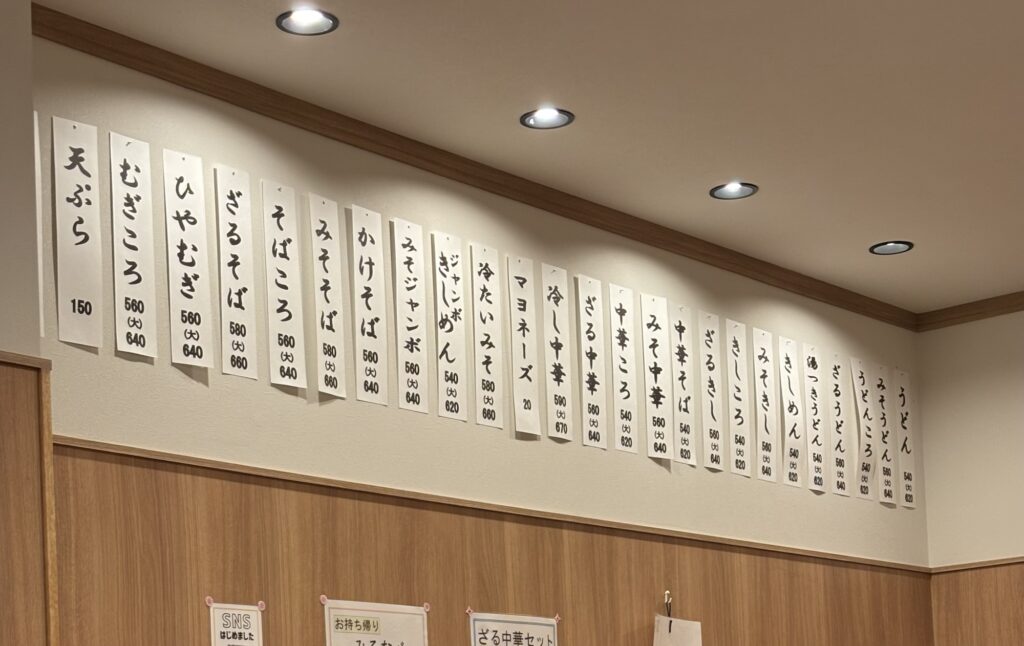 うどん
540
(大)
620
みそうどん
560
(大)
640
うどんころ
540
(大)
620
ざるうどん
560
(大)
640
湯つきうどん
540
(大)
620
きしめん
540
(大)
620
みそきし
560
(大)
640
きしころ
540
(大)
620
ざるきし
560
(大)
640
中華そば
540
(大)
620
みそ中華
560
(大)
640
中華ころ
540
(大)
620
ざる中華
560
(大)
640
冷し中華
590
(大)
670
マヨネーズ
20
冷たいみそ
580
(大)
660
ジャンボ
きしめん
540
(大)
620
みそジャンボ
560
(大)
640
かけそば
560
(大)
640
みそそば
580
(大)
660
そばころ
560
(大)
640
ざるそば
580
(大)
660
ひやむぎ
560
(大)
640
むぎころ
560
(大)
640
天ぷら
150
SNS
はじめました
お持ち帰り
ざる中華セット